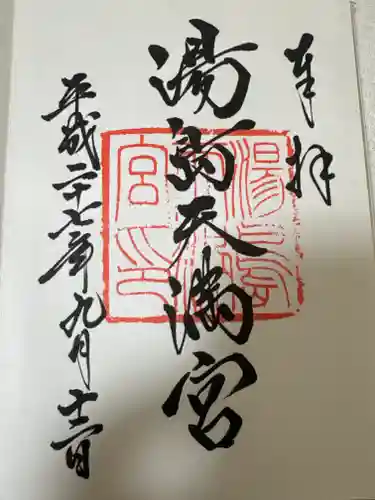 奉拝
湯島天満宮
平成二十七年九月
湯島天満宮印